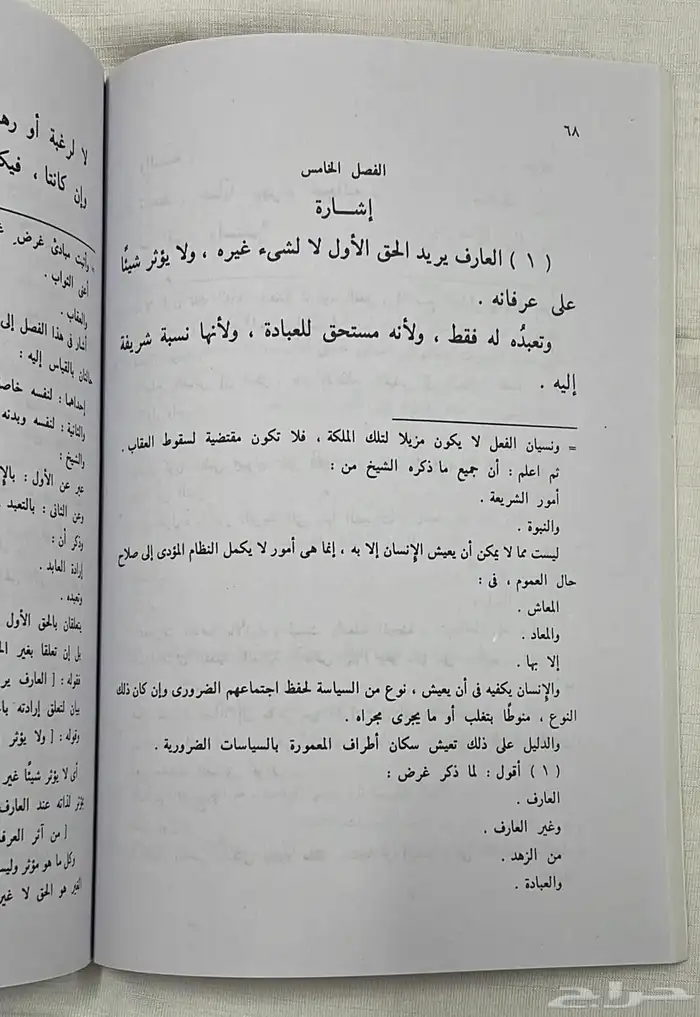 ٦٨
الفصل الخامس
إشـــارة
( ١ ) العارف يريد الحق الأول لا لشىء غيره ، ولا يؤثر شيئًا
على عرفانه .
وتعبدُه له فقط ، ولأنه مستحق للعبادة ، ولأنها نسبة شريفة
إليه .
= ونسيان الفعل لا يكون مزيلا لتلك الملكة ، فلا تكون مقتضية لسقوط العقاب .
ثم اعلم : أن جميع ما ذكره الشيخ من :
أمور الشريعة .
والنبوة .
ليست مما لا يمكن أن يعيش الإنسان إلا به ، إنما هى أمور لا يكمل النظام المؤدى إلى صلاح
حال العموم ، فى :
المعاش .
والمعاد .
إلا بها .
والإنسان يكفيه فى أن يعيش ، نوع من السياسة لحفظ اجتماعهم الضرورى وإن كان ذلك
النوع ، منوطًا بتغلب أو ما يجرى مجراه .
والدليل على ذلك تعيش سكان أطراف المعمورة بالسياسات الضرورية .
( ١ ) أقول : لما ذكر غرض :
العارف .
وغير العارف .
من الزهد .
والعبادة .
لا لرغبة أو
وإن كانتا ،
مبادئ غرض
أعنى الثواب .
والعقاب .
فى هذا الفصل إلى
بالقياس إليه :
إحداهما : لنفسه
والثانية : لنفسه وبدنه
والشيخ :
عبر عن الأول :
وعن الثانى : بالتعبد
وذكر أن :
إرادة العابد .
وتعبده .
يتعلقان بالحق الأول
بل إن تعلقا بغير
فقوله : [ العارف
بيان لتعلق إرادته
وقوله : [ ولا يؤثر
أى لا يؤثر شيئًا غير
لذاته عند العارف
[ من آثر
وكل ما هو مؤثر
هو الحق لا
حراج